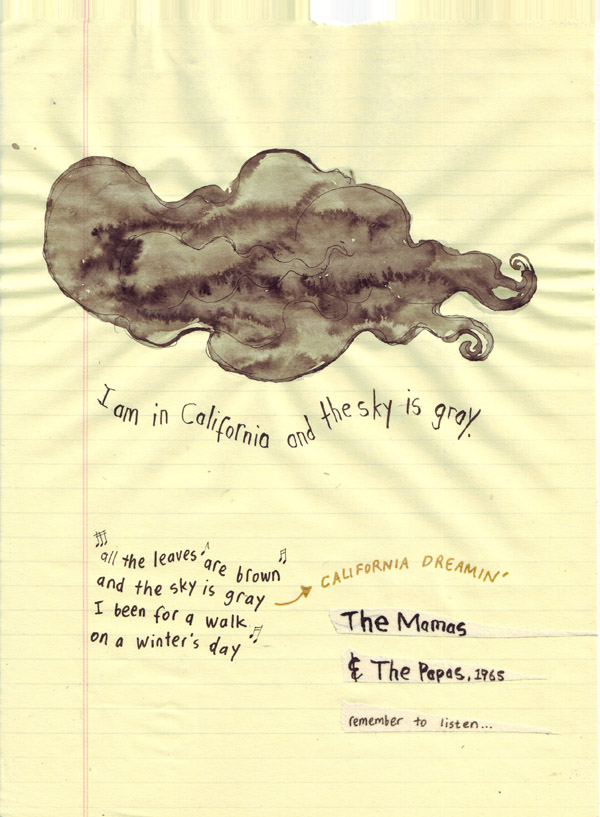 I am in California and the sky is gray.
"all the leaves are brown"
and the sky is gray
I been for a walk
on a winter's day
CALIFORNIA DREAMIN'
The Mamas
& The Papas, 1965
remember to listen...